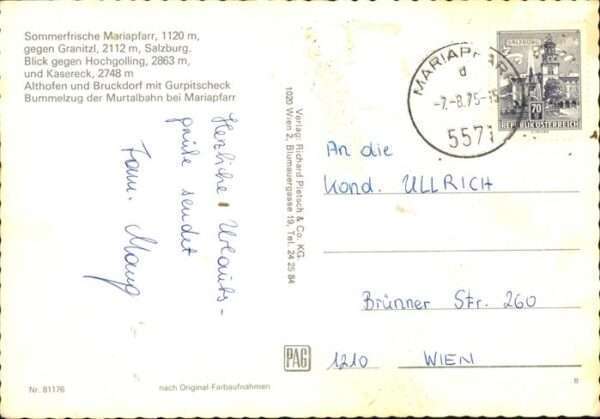 Sommerfrische Mariapfarr, 1120 m,
gegen Granitzl, 2112 m, Salzburg.
Blick gegen Hochgolling, 2863 m,
und Kasereck, 2748 m
Althofen und Bruckdorf mit Gurpitscheck
Bummelzug der Murtalbahn bei Mariapfarr
Herzliche Urlaubs-
grüße sendet
Fam.
Verlag: Richard Pietsch & Co. KG.
1020 Wien 2, Blumauergasse 19, Tel. 24 25 84
PAG
MARIAPFARR
d
-7.-8.75-15
5571
SALZBURG
70
REPUBLIK ÖSTERREICH
An die
Kond. ULLRICH
Brünner Str. 260
1210 WIEN
Nr. 81176
nach Original-Farbaufnahmen